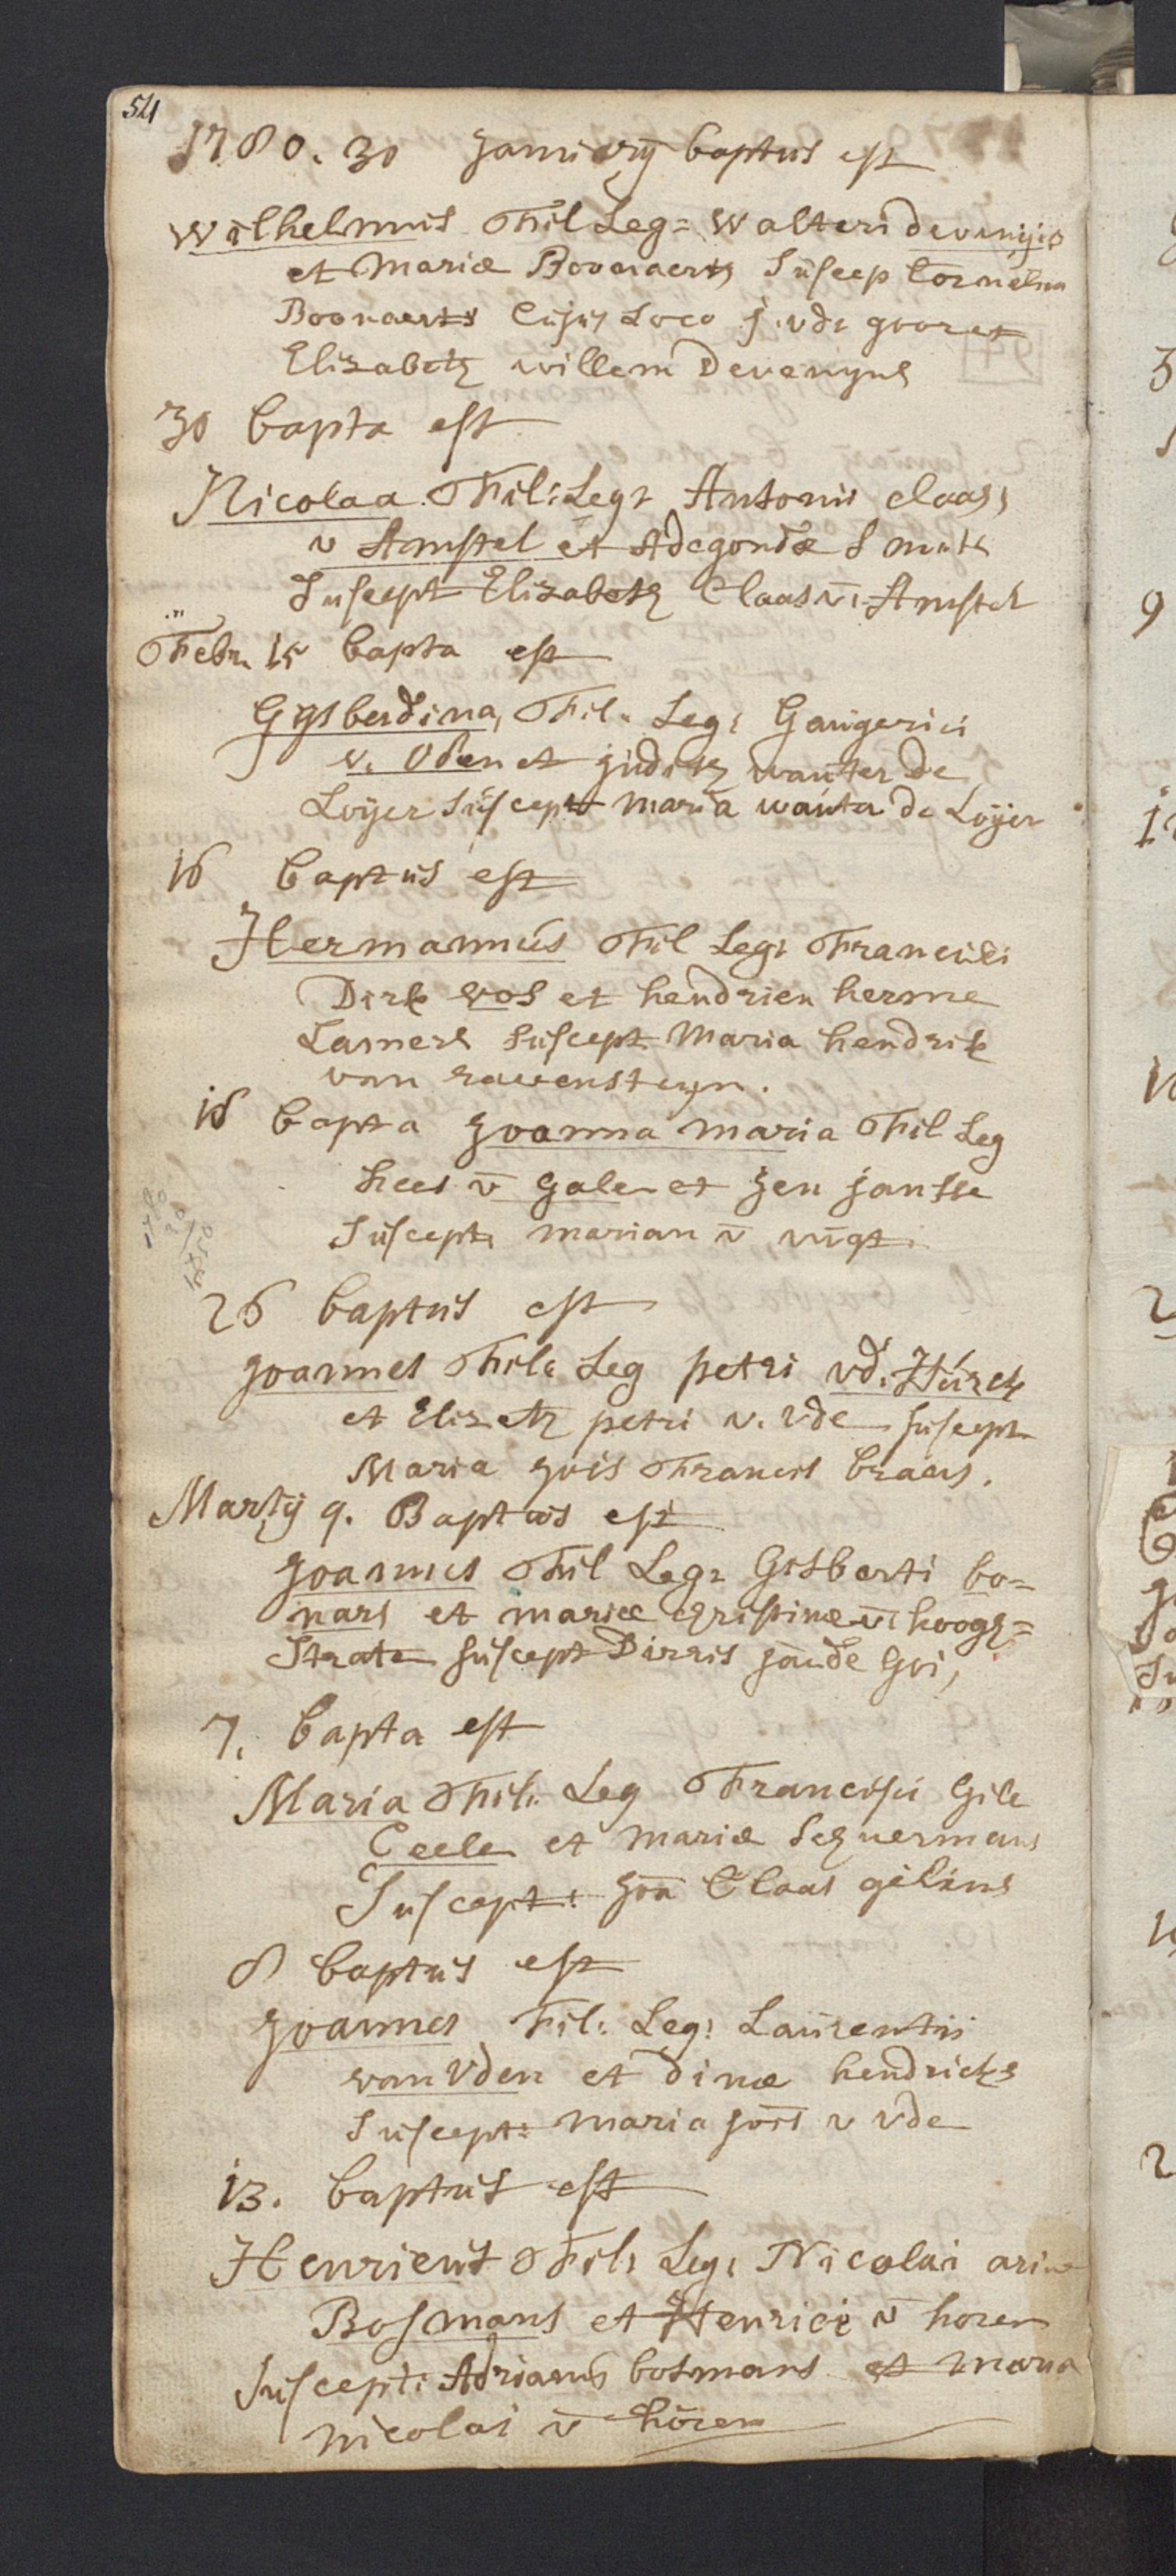 54
1780. 30 Januarij baptus est
Wilhelmus Fil Leg= Walteri Devenijns
et Mariæ Bovenaerts Suscep Cornelia
Boonaerts Cujus Loco j. vde goor et
Elizabeth willem Devenyns
30 bapta est
Nicolaa Fil: Leg: Antonii Claass
v Amstel et Adegondæ Smits
Suscept Elizabeth Claas v. Amstel
Febr. 15 bapta est
Gijsberdina, Fil. Leg: Gaugerici
v. Oden et judith wauter de
Loijer Suscept maria wauter de Loijer
16 baptus est
Hermannus Fil Leg: Francisci
Dirk vos et hendrien herme
Lamers Suscept. Maria hendrik
van ravensteyn.
18 bapta Joanna maria Fil Leg
kees v̄ Gale et Jen jansse
Suscept. marian v̄ vugt.
26 baptus est
Joannes Fil: Leg petri vd. Hurck
et Elizeth petri v. Vde suscept.
Maria Jois Francis braens.
Martij 9. Baptus est
Joannes Fil Leg: Gisberti bo=
nars et mariæ Christinæ v̄ hoogh=
Strate suscept Dirris jande Goi,
7. bapta est
Maria Fil: Leg Francisci Gile
Ceele et mariæ Schuermans
Suscept: Joa Claas gilins
8 baptus est
Joannes Fil: Leg: Laurentii
van Vden et dinæ hendricks
Suscept: maria jois v Vde
13. baptus est
Henricus Fil: Leg: Nicolai arie
Bosmans et Henrice v̄ horen
Suscept: Adrianus bosmans et maria
nicolai v̄ horen